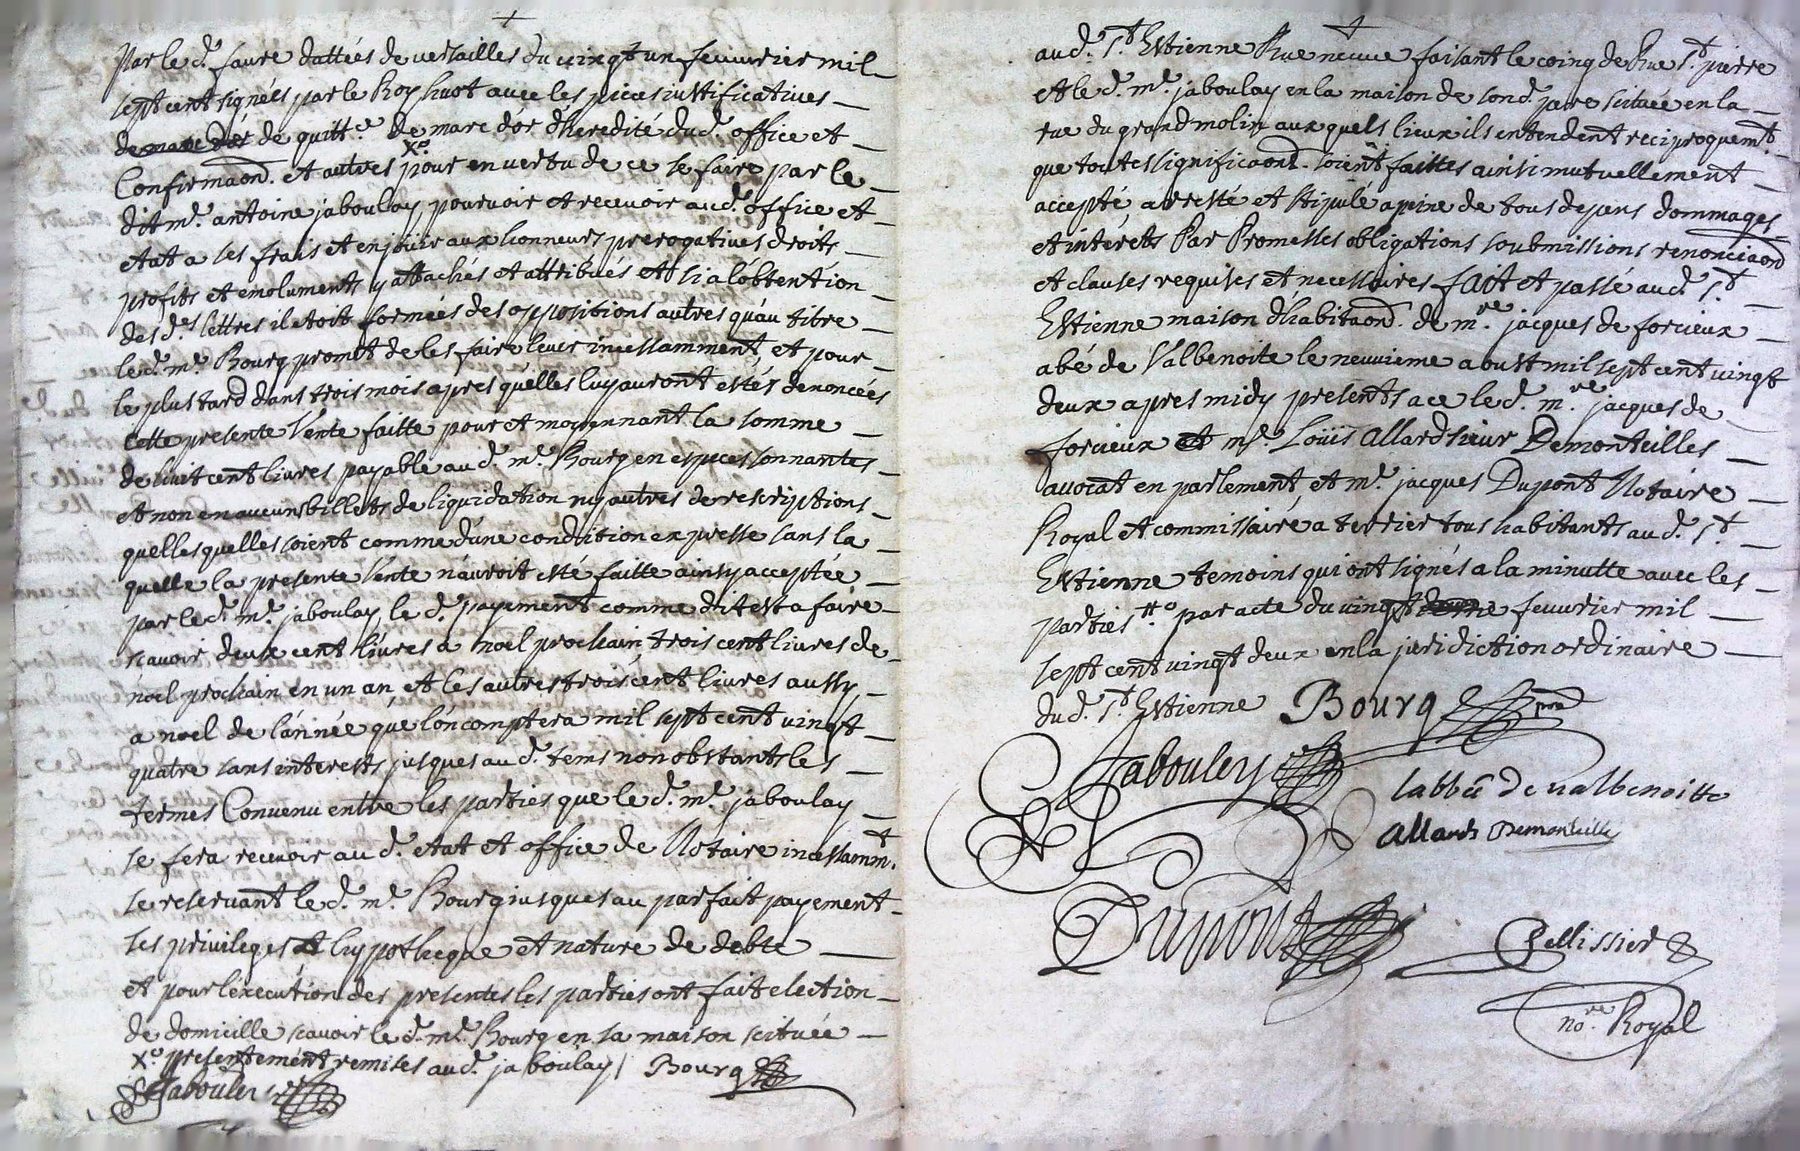 par le d. faure dattées de versailles du vingt un feuvrier mil
sept cent signées par le Roy huot avec les pieces iustificatives
de quitt.ce de marc d'or d'heredité dud. office et
Confirmaon.d et autres x.o pour en vertu de ce se faire par le
dit m.e antoine jaboulay pourvoir et recevoir aud. office et
etat a ses frais et en jouir aux honneurs prerogatives droits
profits et emoluments y attachés et attribués et si a l'obtention
des d.es lettres il etoit formées des oppositions autres qu'au titre
le d. m.e Bourg promet de les faire lever incessamment, et pour
le plus tard dans trois mois apres qu'elles luy auront estés denoncées
cette presente vente faitte pour et moyennant la somme
de huit cent livres payable aud. m.e Bourg en especes sonnantes
et non en aucuns billets de liquidation ny autres de rescriptions
quelles quelles soient comme d'une condition expresse sans la
quelle la presente vente n'auroit esté faitte ainsy acceptée
par le d. m.e jaboulay, le d. payement comme dit est a faire
scavoir deux cent livres a noel prochain trois cent livres de
noel prochain en un an et les autres trois cent livres aussy
a noel de l'année que l'on comptera mil sept cent vingt
quatre sans interests jusques aud. tems non obstants les
termes Convenu entre les parties que le d. m.e jaboulay
se fera recevoir aud. etat et office de Notaire incessamm.t
se reservant le d. m.e Bourg iusques au parfait payement
ses privileges et hypotheque et nature de debte
et pour l'execution des presentes les parties ont fait election
de domicille scavoir le d. m.e Bourg en sa maison scituée
x.o presentement remises aud. jaboulay / Bourg
Jabouley
aud. S.t Estienne Rue neuve faisant le coing de Rue S.t pierre
et le d. m.e jaboulay en la maison de sond. pere scituée en la
rue du grand molin auxquels lieux ils entendent reciproquem.t
que toutes significaon.d soient faittes ainsi mutuellement
accepté arresté et stipulé a peine de tous depens dommages
et interets Par Promesses obligations soubmissions renonciaon.d
et clauses requises et necessaires fait et passé aud. S.t
Estienne maison d'habitaon.d de m.re jacques de forcieux
abé de Valbenoite le neuvieme aoust mil sept cent vingt
deux apres midy presents a ce le d. m.re jacques de
forcieux et m.e Loüis Allard sieur Demonteilles
avocat en parlement et m.e jacques Dupont Notaire
Royal et commissaire a terrier tous habitants aud. S.t
Estienne temoins qui ont signés a la minutte avec les
parties tt.o par acte du vingt feuvrier mil
sept cent vingt deux en la juridiction ordinaire
dud. S.t Estienne Bourg
Jabouley
labbé de valbenoitte
Allard Demonteille
Dupont
Pellissier
no.re Royal